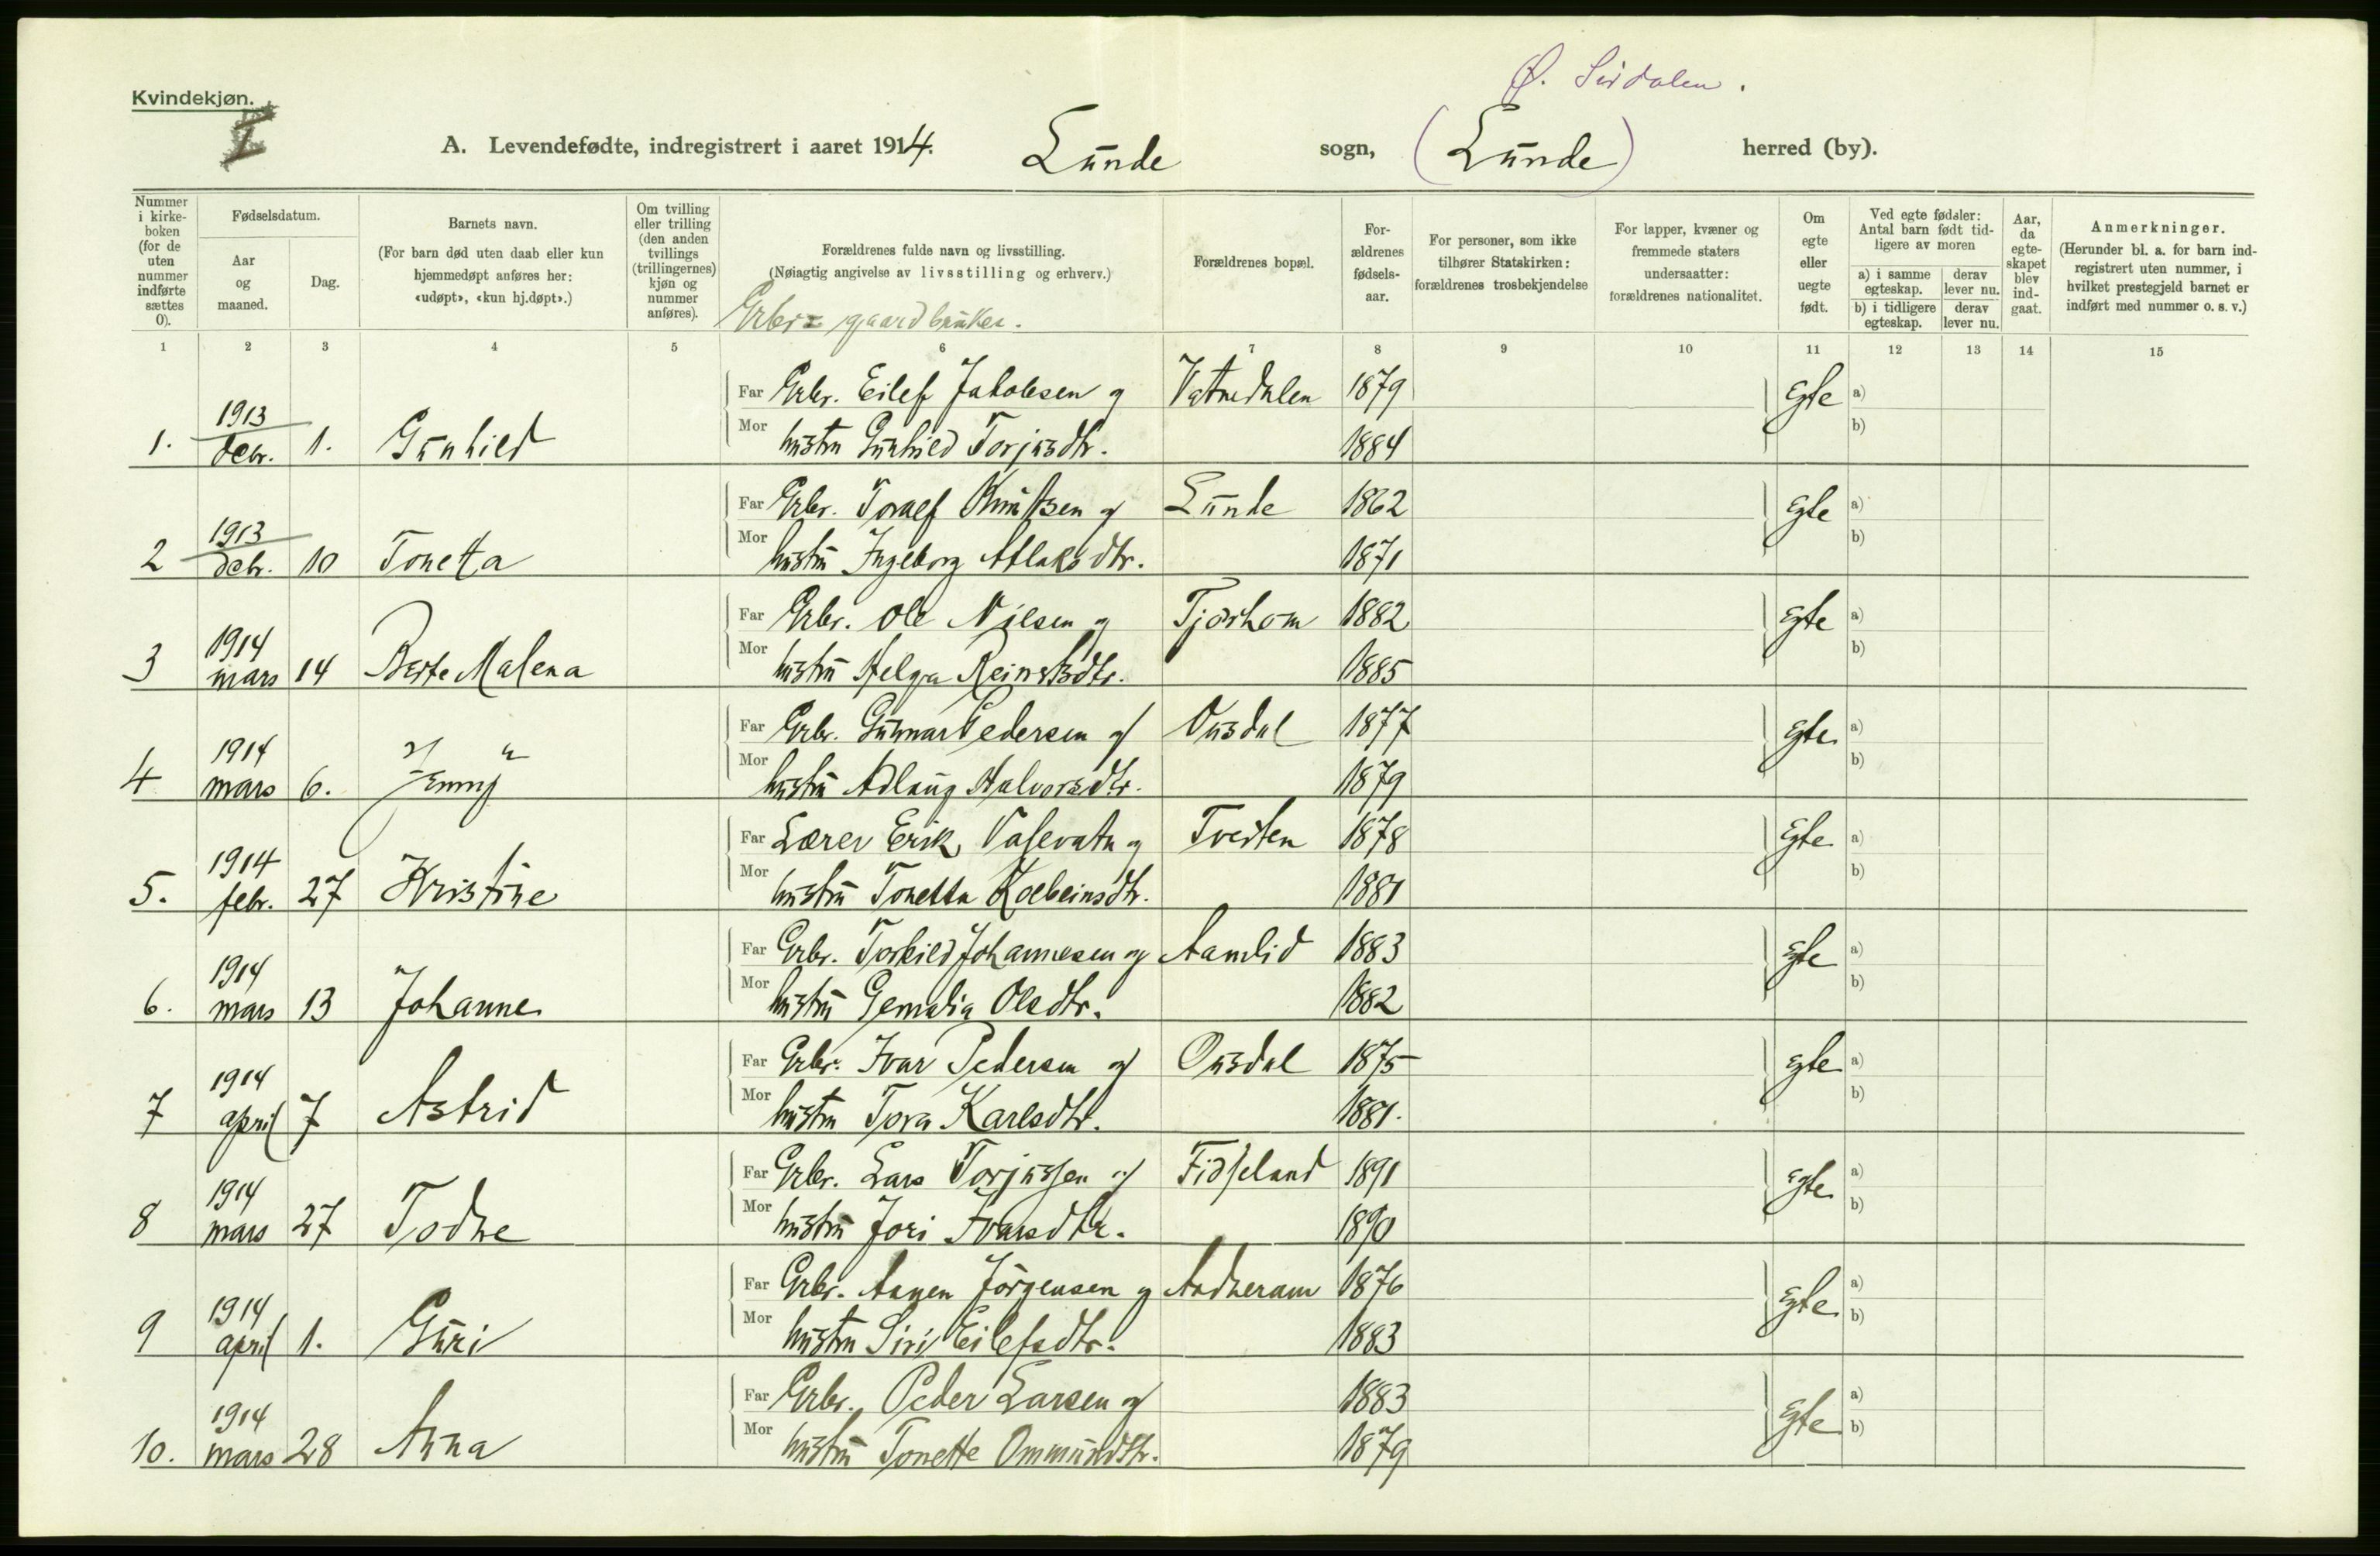 Ø. Sirdalen.
Kvindekjøn.
I
A. Levendefødte, indregistrert i aaret 1914. Lunde sogn, (Lunde) herred (by).
Nummer i kirke-boken (for de uten nummer indførte sættes 0).
Fødselsdatum.
Aar og maaned.
Dag.
Barnets navn.
(For barn død uten daab eller kun hjemmedøpt anføres her: «udøpt», «kun hj.døpt».)
Om tvilling eller trilling (den anden tvillings (trillingernes) kjøn og nummer anføres).
Forældrenes fulde navn og livsstilling.
(Nøiagtig angivelse av livsstilling og erhverv.)
Grbr = gaardbruker.
Forældrenes bopæl.
For-ældrenes fødsels-aar.
For personer, som ikke tilhører Statskirken: forældrenes trosbekjendelse
For lapper, kvæner og fremmede staters undersaatter: forældrenes nationalitet.
Om egte eller uegte født.
Ved egte fødsler: Antal barn født tid-ligere av moren
a) i samme egteskap.
derav lever nu.
b) i tidligere egteskap.
derav lever nu.
Aar, da egte-skapet blev ind-gaat.
Anmerkninger.
(Herunder bl. a. for barn ind-registrert uten nummer, i hvilket prestegjeld barnet er indført med nummer o. s. v.)
1 2 3 4 5 6 7 8 9 10 11 12 13 14 15
Far Grbr. Eilef Jakobsen og Vatnedalen 1879 Egte a)
1. 1913 debr. 1. Gunhild Mor hustru Gunhild Torjusdtr. 1884 b)
Far Grbr. Toralf Knutsen og Lunde 1862 Egte a)
2 1913 debr. 10 Tonetta Mor hustru Ingeborg Atlaksdtr. 1871 b)
Far Grbr. Ole Nilsen og Tjørhom 1882 Egte a)
3 1914 mars 14 Berte Malena Mor hustru Helga Reinertsdtr. 1885 b)
Far Grbr. Gunnar Pedersen og Ousdal 1877 Egte a)
4 1914 mars 6. Jenny Mor hustru Adlaug Halvorsdtr. 1879 b)
Far Lærer Erik Valevatn og Tveiten 1878 Egte a)
5. 1914 febr. 27 Kristine Mor hustru Tonetta Kolbeinsdtr. 1881 b)
Far Grbr. Torkild Johannesen og Aamlid 1883 Egte a)
6. 1914 mars 13 Johanne Mor hustru Gemalia Olsdtr. 1882 b)
Far Grbr. Ivar Pedersen og Ousdal 1875 Egte a)
7 1914 april 7 Astrid Mor hustru Tora Karlsdtr. 1881. b)
Far Grbr. Lars Torjussen og Fidjeland 1891 Egte a)
8 1914 mars 27 Todne Mor hustru Jori Ivarsdtr. 1890 b)
Far Grbr. Aanen Jörgensen og Aadneram 1876 Egte a)
9 1914 april 1. Guri Mor hustru Siri Eilefsdtr. 1883 b)
Far Grbr. Peder Larsen og 1883 Egte a)
10. 1914 mars 28 Anna Mor hustru Tonette Ommundsdtr. 1879 b)